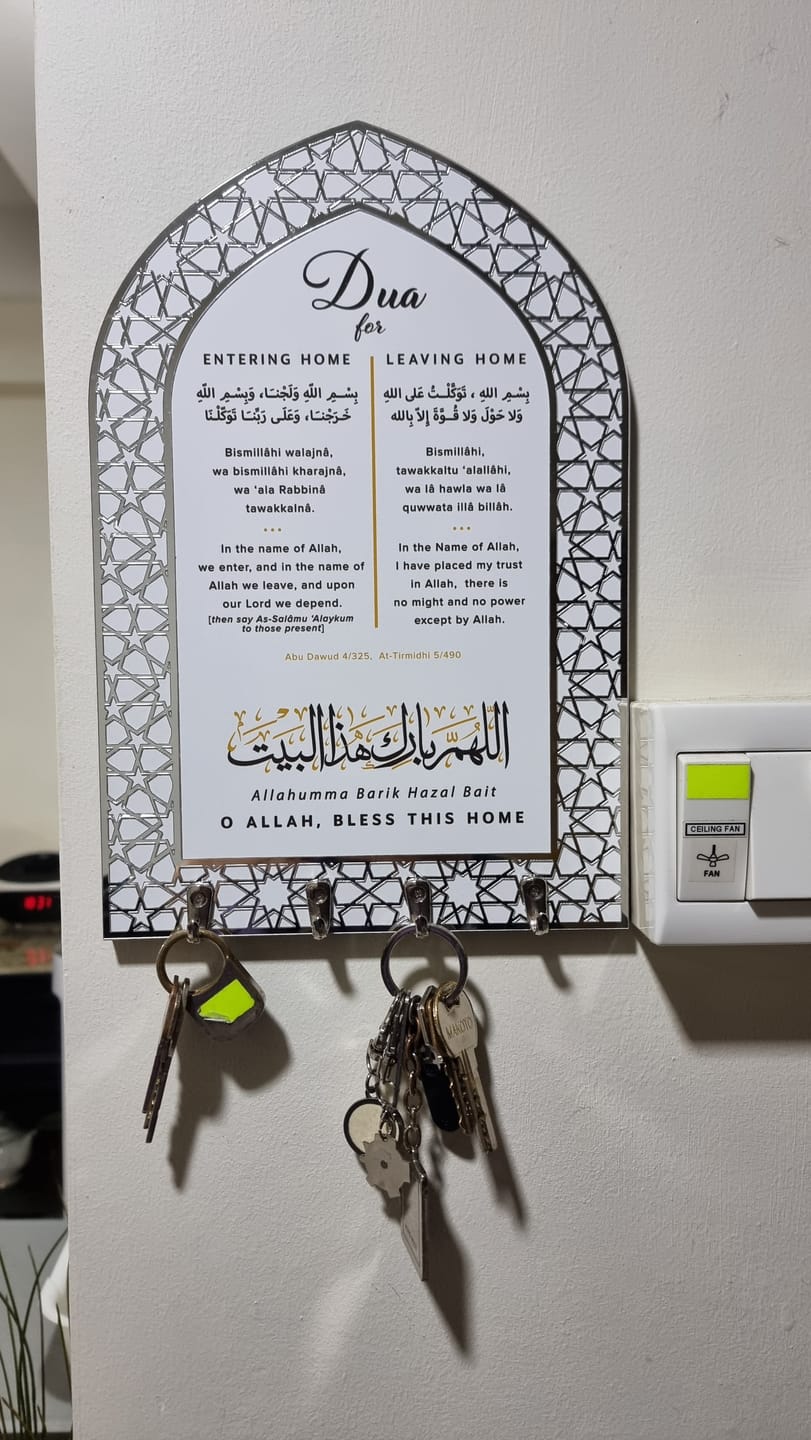 Dua
for
ENTERING HOME
بِسْمِ اللّهِ وَلَجْنَا، وَبِسْمِ اللّهِ
خَرَجْنَا، وَعَلَى رَبِّنَا تَوَكَّلْنَا
Bismillâhi walajnâ,
wa bismillâhi kharajnâ,
wa ‘ala Rabbinâ
tawakkalnâ.
In the name of Allah,
we enter, and in the name of
Allah we leave, and upon
our Lord we depend.
[then say As-Salâmu ‘Alaykum
to those present]
LEAVING HOME
بِسْمِ اللهِ ، تَوَكَّلْتُ عَلى اللهِ
وَلا حَوْلَ وَلا قُوَّةَ إِلاّ بِالله
Bismillâhi,
tawakkaltu ‘alallâhi,
wa lâ hawla wa lâ
quwwata illâ billâh.
In the Name of Allah,
I have placed my trust
in Allah, there is
no might and no power
except by Allah.
Abu Dawud 4/325, At-Tirmidhi 5/490
اللّهمّ بارك هذا البيت
Allahumma Barik Hazal Bait
O ALLAH, BLESS THIS HOME
CEILING FAN
FAN